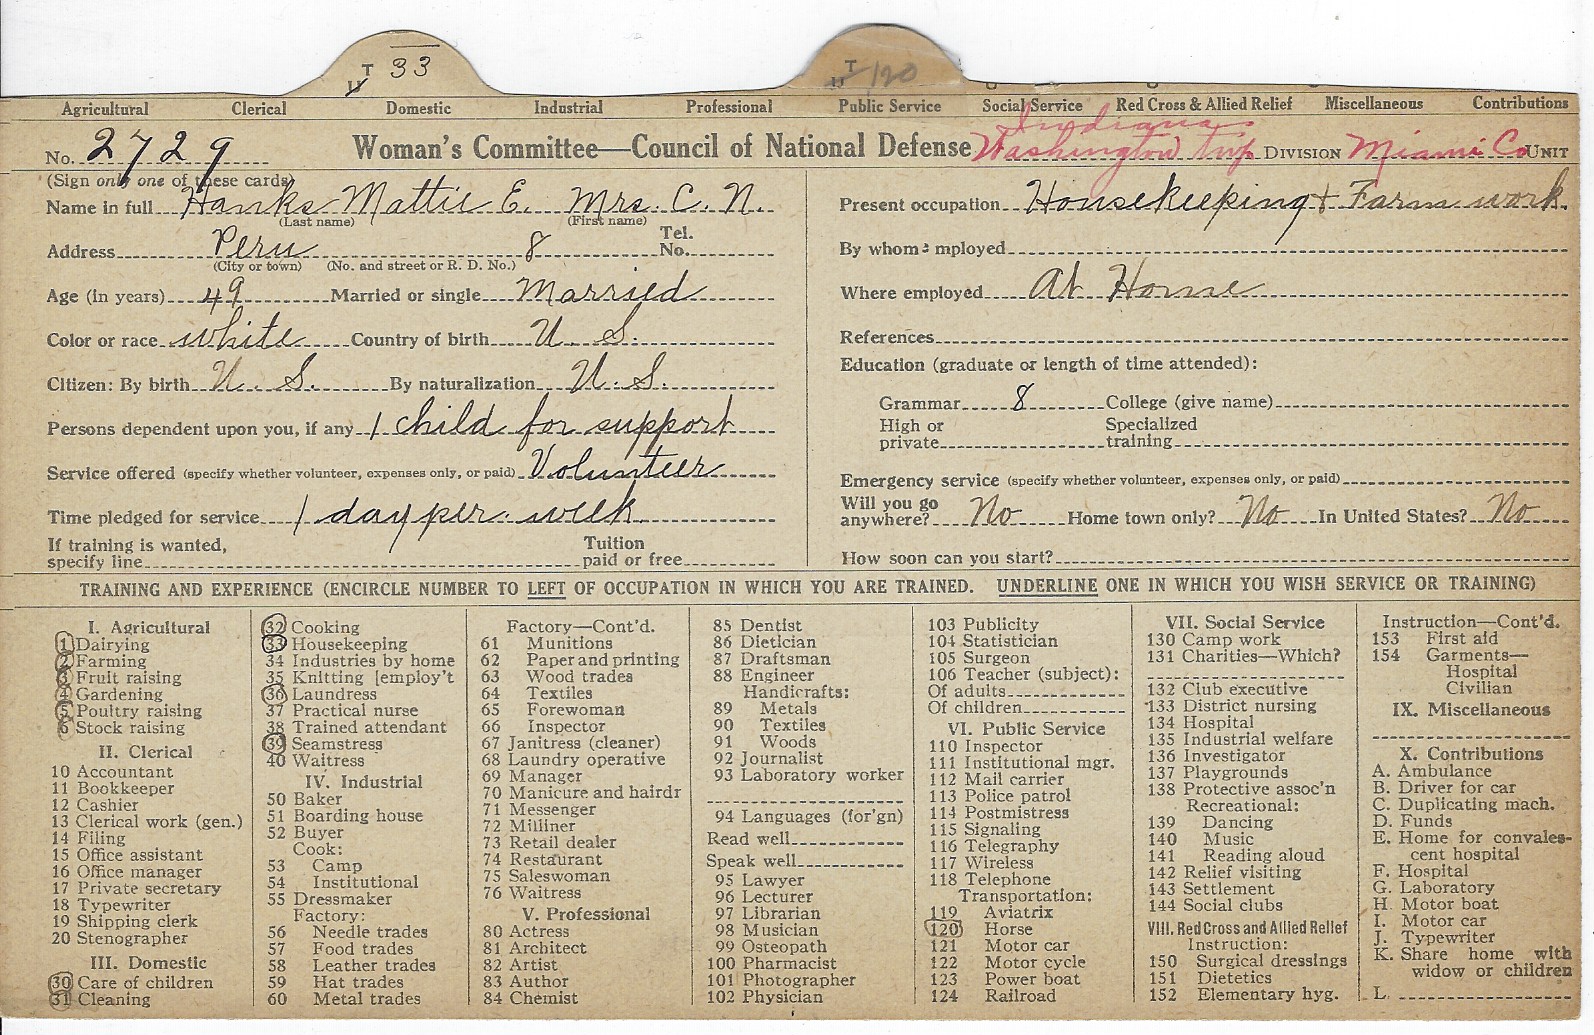 T 33
U
T
U 120
Agricultural Clerical Domestic Industrial Professional Public Service Social Service Red Cross & Allied Relief Miscellaneous Contributions
No. 2729 Woman's Committee—Council of National Defense Indiana
Washington Twp. DIVISION Miami Co UNIT
(Sign only one of these cards)
Name in full Hanks Mattie E. Mrs. C. N.
(Last name) (First name)
Address Peru 8 Tel. No.
(City or town) (No. and street or R. D. No.)
Age (in years) 49 Married or single Married
Color or race white Country of birth U. S.
Citizen: By birth U. S. By naturalization U. S.
Persons dependent upon you, if any 1 child for support
Service offered (specify whether volunteer, expenses only, or paid) Volunteer
Time pledged for service 1 day per week
If training is wanted,
specify line Tuition
paid or free
Present occupation Housekeeping + Farm work.
By whom employed
Where employed At Home
References
Education (graduate or length of time attended):
Grammar 8 College (give name)
High or
private Specialized
training
Emergency service (specify whether volunteer, expenses only, or paid)
Will you go
anywhere? No Home town only? No In United States? No
How soon can you start?
TRAINING AND EXPERIENCE (ENCIRCLE NUMBER TO LEFT OF OCCUPATION IN WHICH YOU ARE TRAINED. UNDERLINE ONE IN WHICH YOU WISH SERVICE OR TRAINING)
I. Agricultural
1 Dairying
2 Farming
3 Fruit raising
4 Gardening
5 Poultry raising
6 Stock raising
II. Clerical
10 Accountant
11 Bookkeeper
12 Cashier
13 Clerical work (gen.)
14 Filing
15 Office assistant
16 Office manager
17 Private secretary
18 Typewriter
19 Shipping clerk
20 Stenographer
III. Domestic
30 Care of children
31 Cleaning
32 Cooking
33 Housekeeping
34 Industries by home
35 Knitting [employ't
36 Laundress
37 Practical nurse
38 Trained attendant
39 Seamstress
40 Waitress
IV. Industrial
50 Baker
51 Boarding house
52 Buyer
Cook:
53 Camp
54 Institutional
55 Dressmaker
Factory:
56 Needle trades
57 Food trades
58 Leather trades
59 Hat trades
60 Metal trades
Factory—Cont'd.
61 Munitions
62 Paper and printing
63 Wood trades
64 Textiles
65 Forewoman
66 Inspector
67 Janitress (cleaner)
68 Laundry operative
69 Manager
70 Manicure and hairdr
71 Messenger
72 Milliner
73 Retail dealer
74 Restaurant
75 Saleswoman
76 Waitress
V. Professional
80 Actress
81 Architect
82 Artist
83 Author
84 Chemist
85 Dentist
86 Dietician
87 Draftsman
88 Engineer
Handicrafts:
89 Metals
90 Textiles
91 Woods
92 Journalist
93 Laboratory worker
94 Languages (for'gn)
Read well
Speak well
95 Lawyer
96 Lecturer
97 Librarian
98 Musician
99 Osteopath
100 Pharmacist
101 Photographer
102 Physician
103 Publicity
104 Statistician
105 Surgeon
106 Teacher (subject):
Of adults
Of children
VI. Public Service
110 Inspector
111 Institutional mgr.
112 Mail carrier
113 Police patrol
114 Postmistress
115 Signaling
116 Telegraphy
117 Wireless
118 Telephone
Transportation:
119 Aviatrix
120 Horse
121 Motor car
122 Motor cycle
123 Power boat
124 Railroad
VII. Social Service
130 Camp work
131 Charities—Which?
132 Club executive
133 District nursing
134 Hospital
135 Industrial welfare
136 Investigator
137 Playgrounds
138 Protective assoc'n
Recreational:
139 Dancing
140 Music
141 Reading aloud
142 Relief visiting
143 Settlement
144 Social clubs
VIII. Red Cross and Allied Relief
Instruction:
150 Surgical dressings
151 Dietetics
152 Elementary hyg.
Instruction—Cont'd.
153 First aid
154 Garments—
Hospital
Civilian
IX. Miscellaneous
X. Contributions
A. Ambulance
B. Driver for car
C. Duplicating mach.
D. Funds
E. Home for convales-
cent hospital
F. Hospital
G. Laboratory
H. Motor boat
I. Motor car
J. Typewriter
K. Share home with
widow or children
L.